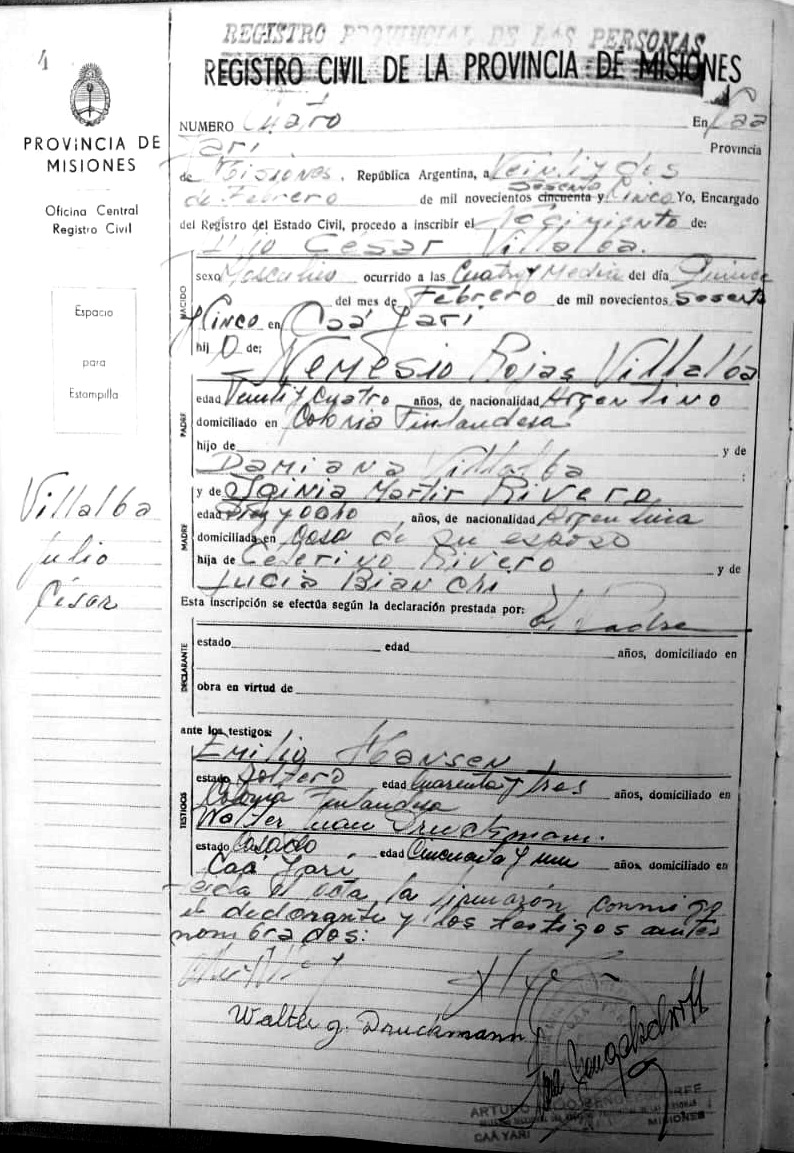 4
REGISTRO PROVINCIAL DE LAS PERSONAS
REGISTRO CIVIL DE LA PROVINCIA DE MISIONES
PROVINCIA DE
MISIONES
Oficina Central
Registro Civil
Espacio
para
Estampilla
Villalba
Julio
César
NUMERO Cuatro En Caá
Yarí Provincia
de Misiones, República Argentina, a Veintiydos
de Febrero de mil novecientos cincuenta y Cinco Yo, Encargado
sesenta
del Registro del Estado Civil, procedo a inscribir el Nacimiento de:
Julio César Villalba.
NACIDO
sexo Masculino ocurrido a las Cuatro y Media del día Quince
del mes de Febrero de mil novecientos Sesenta
y Cinco en Caá Yarí
hij o de;
Nemesio Rojas Villalba
PADRE
edad Veinti y Cuatro años, de nacionalidad Argentino
domiciliado en Colonia Finlandesa
hijo de y de
Damiana Villalba ;
y de Iginia Martir Rivero
MADRE
edad Diez y ocho años, de nacionalidad Argentina
domiciliada en Casa de su esposo
hija de Ceferino Rivero y de
Lucia Bianchi
Esta inscripción se efectúa según la declaración prestada por: El Padre
DECLARANTE
estado edad años, domiciliado en
obra en virtud de
ante los testigos:
Emilio Hansen
TESTIGOS
estado Soltero edad Cuarenta y tres años, domiciliado en
Colonia Finlandesa
Walter Juan Druckmann.
estado Casado edad Cincuenta y un años, domiciliado en
Caá Yarí
Leida el acta la firmarón conmigo
el declarante y los testigos antes
nombrados:
Walter J. Druckmann
ARTURO
CAÁ YARI
MISIONES